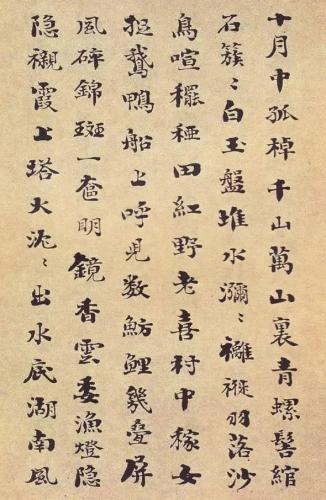 十月中孤棹千山萬山裏青螺髻綰
石簇〻白玉盤堆水瀰〻褵褷羽落沙
鳥喧䆉稏田紅野老喜村中稼女
捉鵞鴨船上呼児数魴鯉幾疊屏
風碎錦斑一奩明鏡香雲委漁燈隐
隐襯霞上塔火〻出水底湖南風